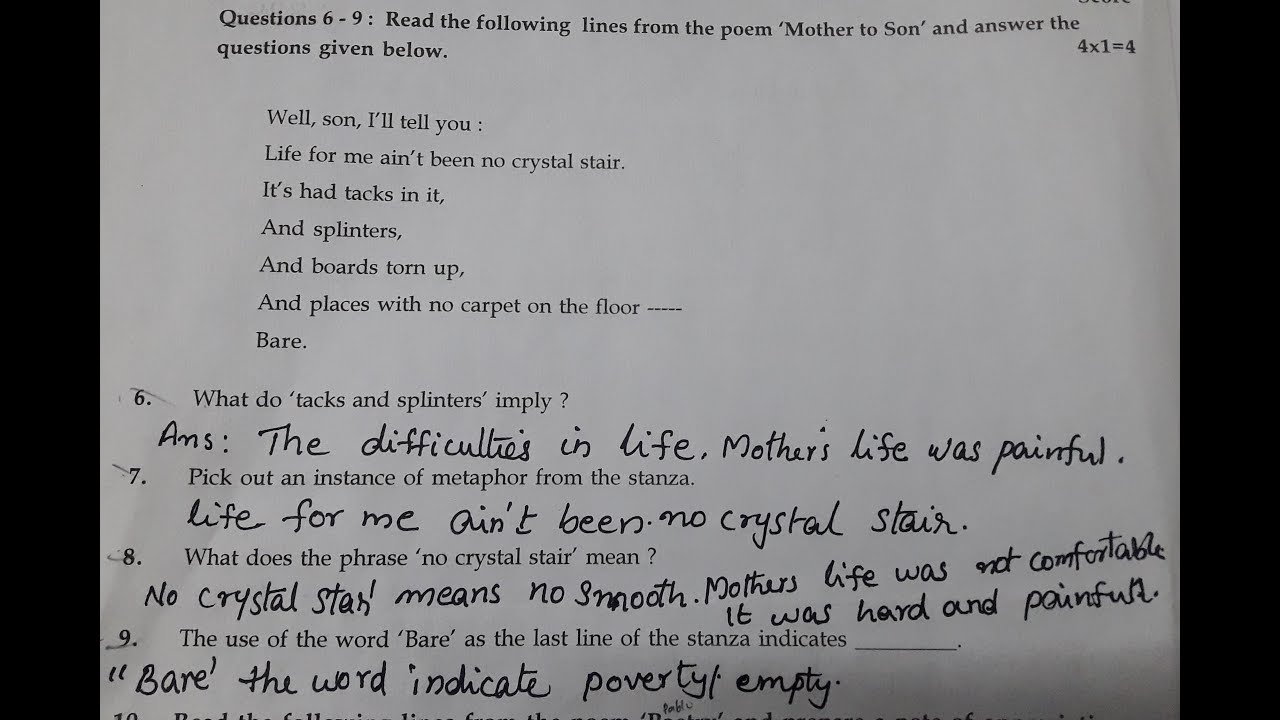 Questions 6 - 9 : Read the following lines from the poem ‘Mother to Son’ and answer the
questions given below.
4x1=4
Well, son, I’ll tell you :
Life for me ain’t been no crystal stair.
It’s had tacks in it,
And splinters,
And boards torn up,
And places with no carpet on the floor -----
Bare.
6. What do ‘tacks and splinters’ imply ?
Ans: The difficulties in life. Mother's life was painful.
7. Pick out an instance of metaphor from the stanza.
life for me ain't been no crystal stair.
8. What does the phrase ‘no crystal stair’ mean ?
No crystal stair means no smooth. Mothers life was not comfortable
it was hard and painful.
9. The use of the word ‘Bare’ as the last line of the stanza indicates __________.
"Bare' the word indicate poverty/ empty.